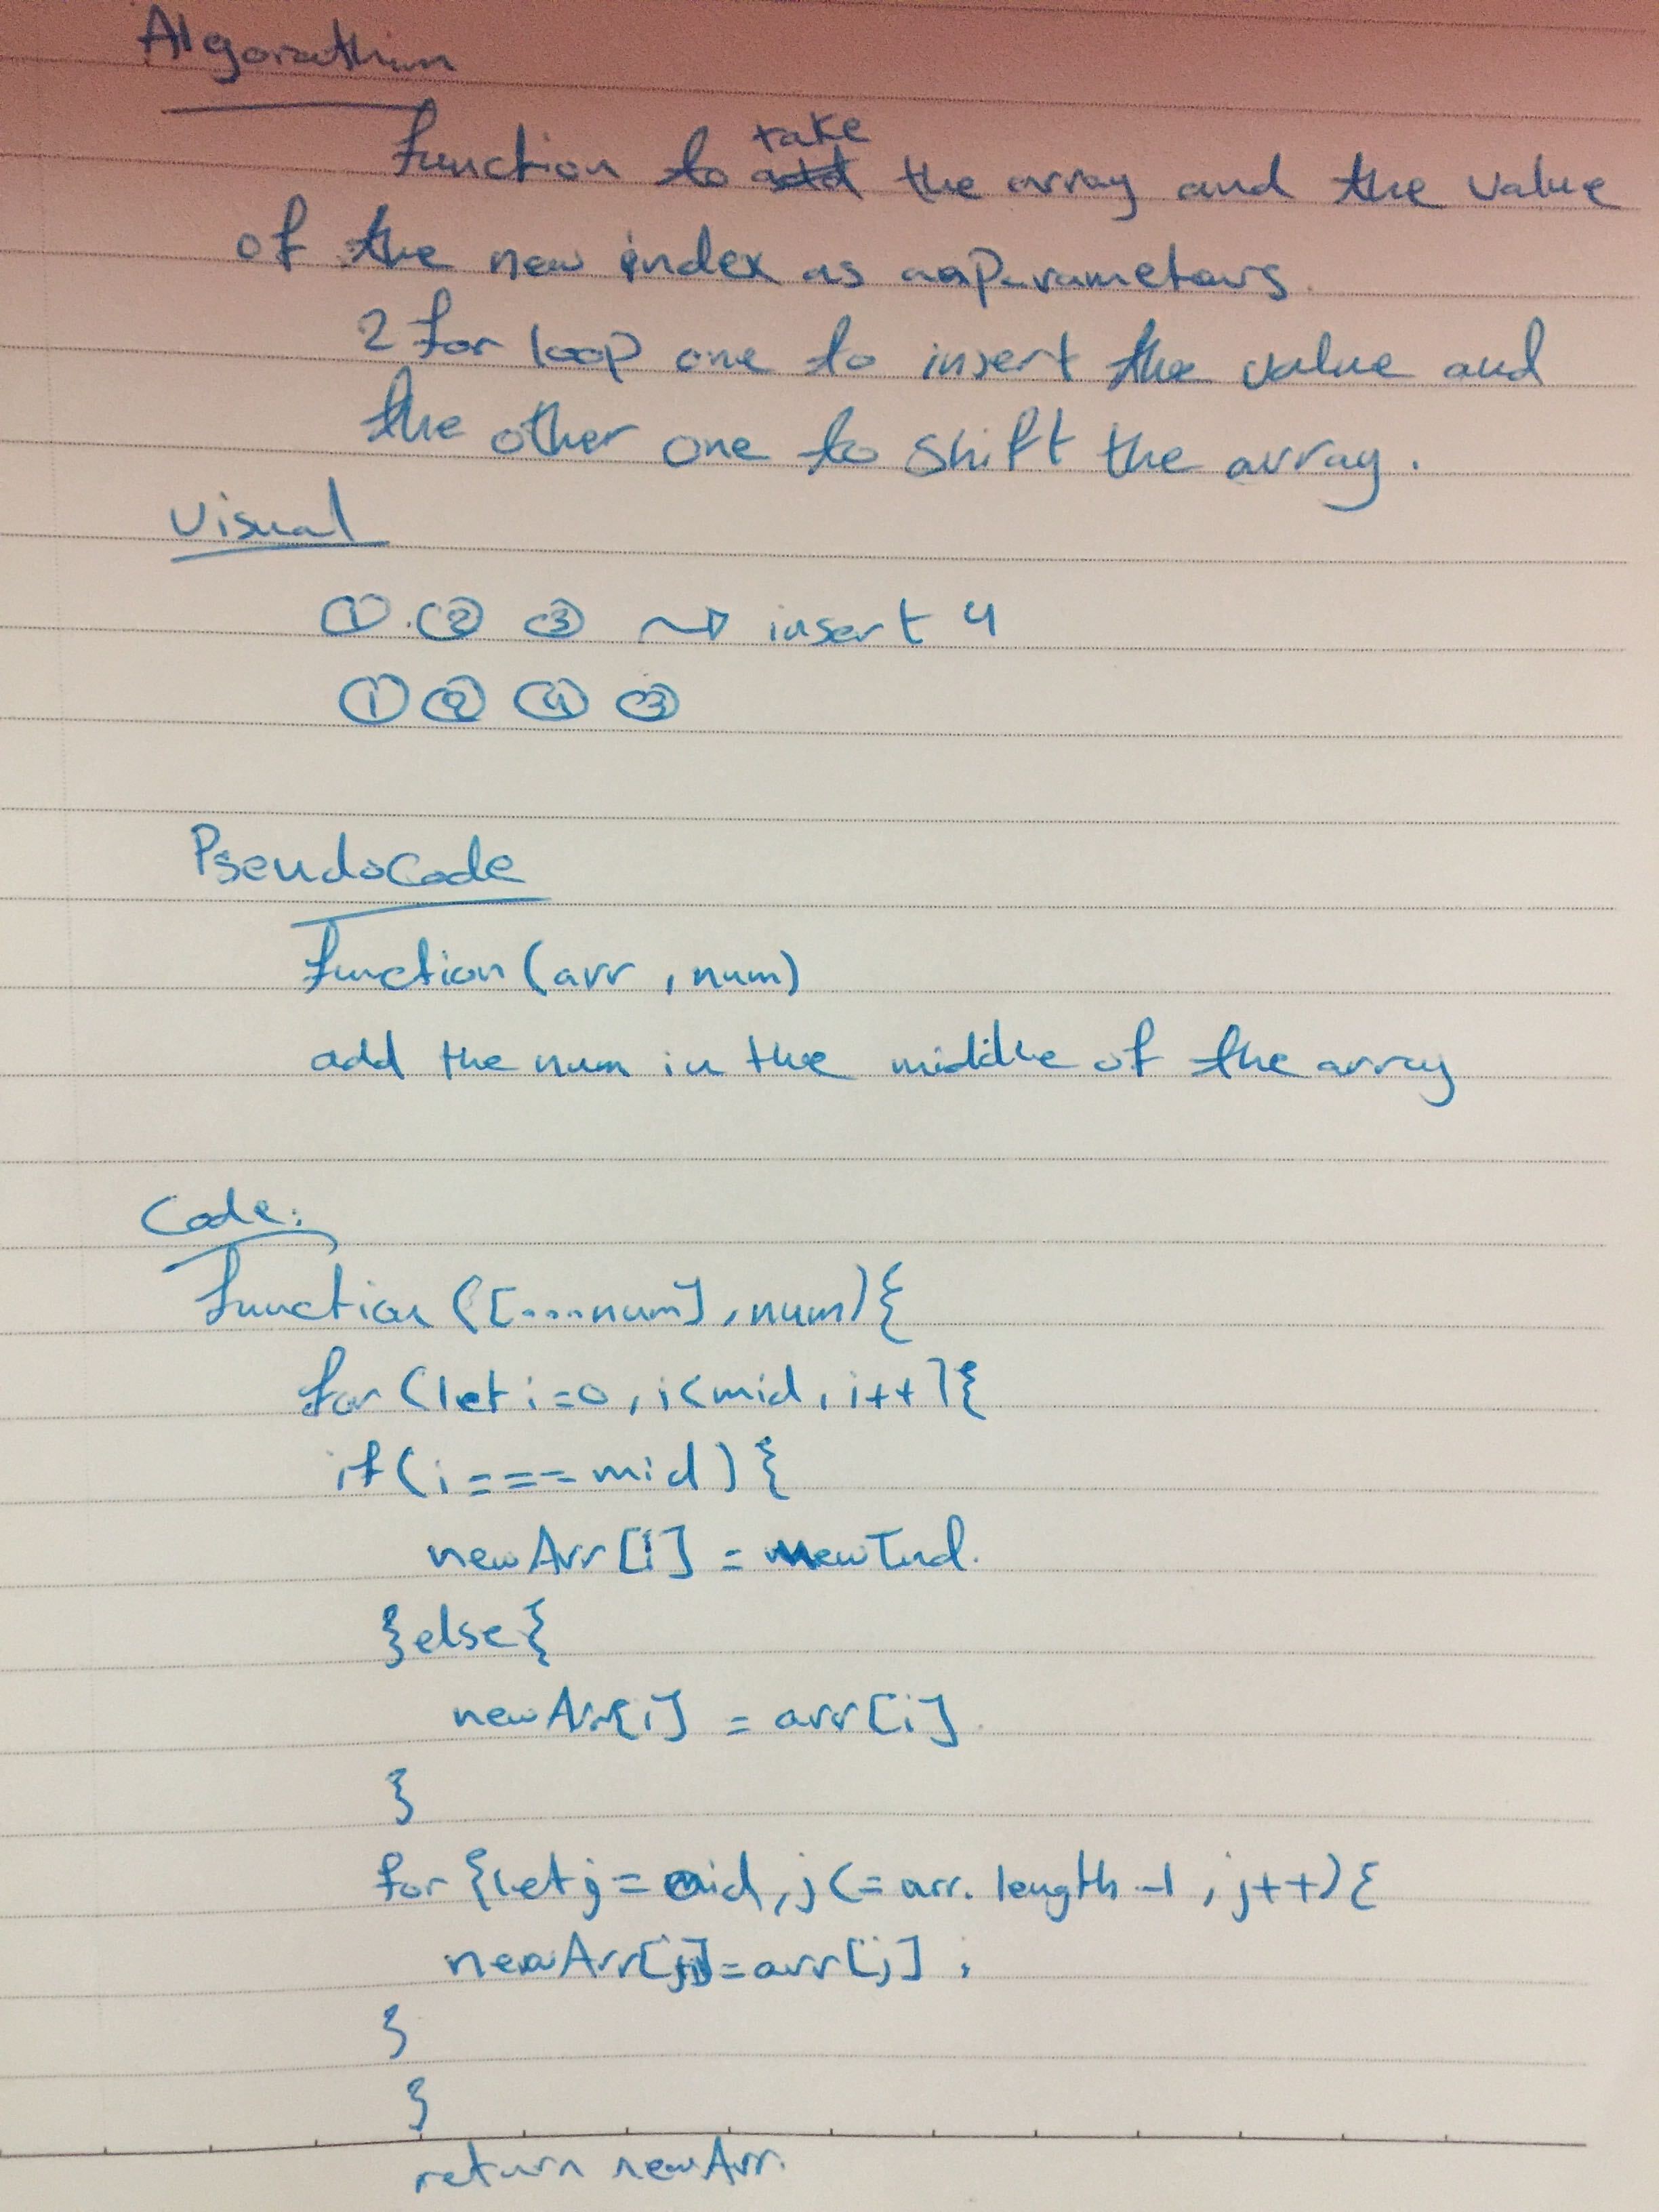 Algorathim
function to take the array and the value
of the new index as parameters.
2 for loop one to insert the value and
the other one to shift the array.
Visual
① ② ③ ⇝ insert 4
① ② ④ ③
PseudoCode
function (arr , num)
add the num in the middle of the array
Code:
function ([...num], num){
for (let i=0, i<mid, i++){
if (i === mid) {
newArr[i] = newInd.
}else{
newArr[i] = arr[i]
}
for {let j = mid, j <= arr.length -1, j++){
= arr[j] ;
}
}
return newArr.